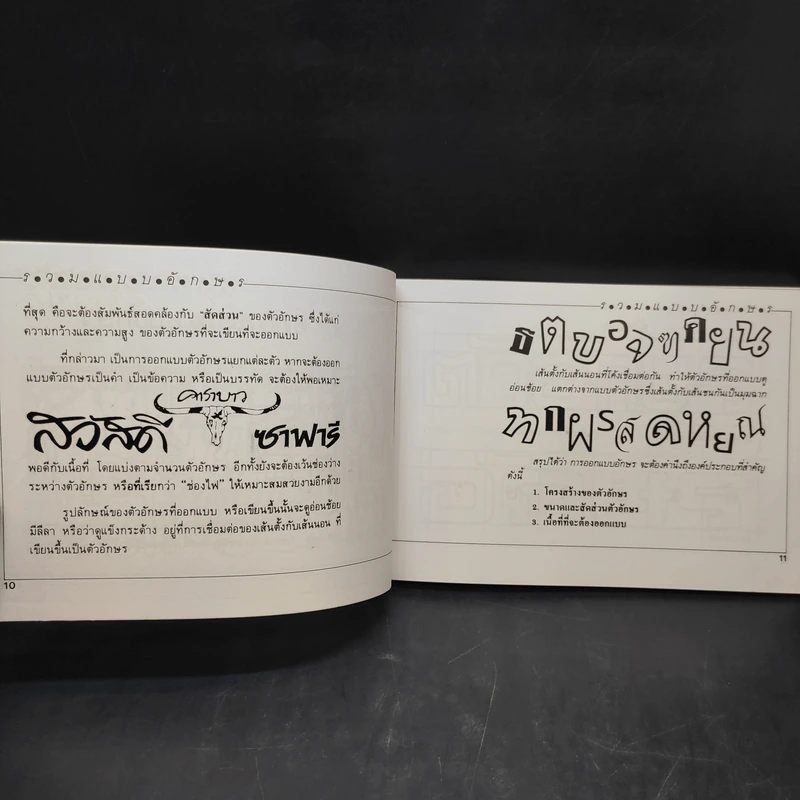 ร•ว•ม•แ•บ•บ•อั•ก•ษ•ร
ที่สุด คือจะต้องสัมพันธ์สอดคล้องกับ "สัดส่วน" ของตัวอักษร ซึ่งได้แก่
ความกว้างและความสูง ของตัวอักษรที่จะเขียนที่จะออกแบบ
ที่กล่าวมา เป็นการออกแบบตัวอักษรแยกแต่ละตัว หากจะต้องออก
แบบตัวอักษรเป็นคำ เป็นข้อความ หรือเป็นบรรทัด จะต้องให้พอเหมาะ
คาราบาว
สวัสดี ซาฟารี
พอดีกับเนื้อที่ โดยแบ่งตามจำนวนตัวอักษร อีกทั้งยังจะต้องเว้นช่องว่าง
ระหว่างตัวอักษร หรือที่เรียกว่า "ช่องไฟ" ให้เหมาะสมสวยงามอีกด้วย
รูปลักษณ์ของตัวอักษรที่ออกแบบ หรือเขียนขึ้นนั้นจะดูอ่อนช้อย
มีลีลา หรือว่าดูแข็งกระด้าง อยู่ที่การเชื่อมต่อของเส้นตั้งกับเส้นนอน ที่
เขียนขึ้นเป็นตัวอักษร
10
ร•ว•ม•แ•บ•บ•อั•ก•ษ•ร
ธตบอจฑคยน
เส้นตั้งกับเส้นนอนที่โค้งเชื่อมต่อกัน ทำให้ตัวอักษรที่ออกแบบดู
อ่อนช้อย แตกต่างจากแบบตัวอักษรซึ่งเส้นตั้งกับเส้นชนกันเป็นมุมฉาก
ทกผรสดหยณ
สรุปได้ว่า การออกแบบอักษร จะต้องคำนึงถึงองค์ประกอบที่สำคัญ
ดังนี้
1. โครงสร้างของตัวอักษร
2. ขนาดและสัดส่วนตัวอักษร
3. เนื้อที่ที่จะต้องออกแบบ
11